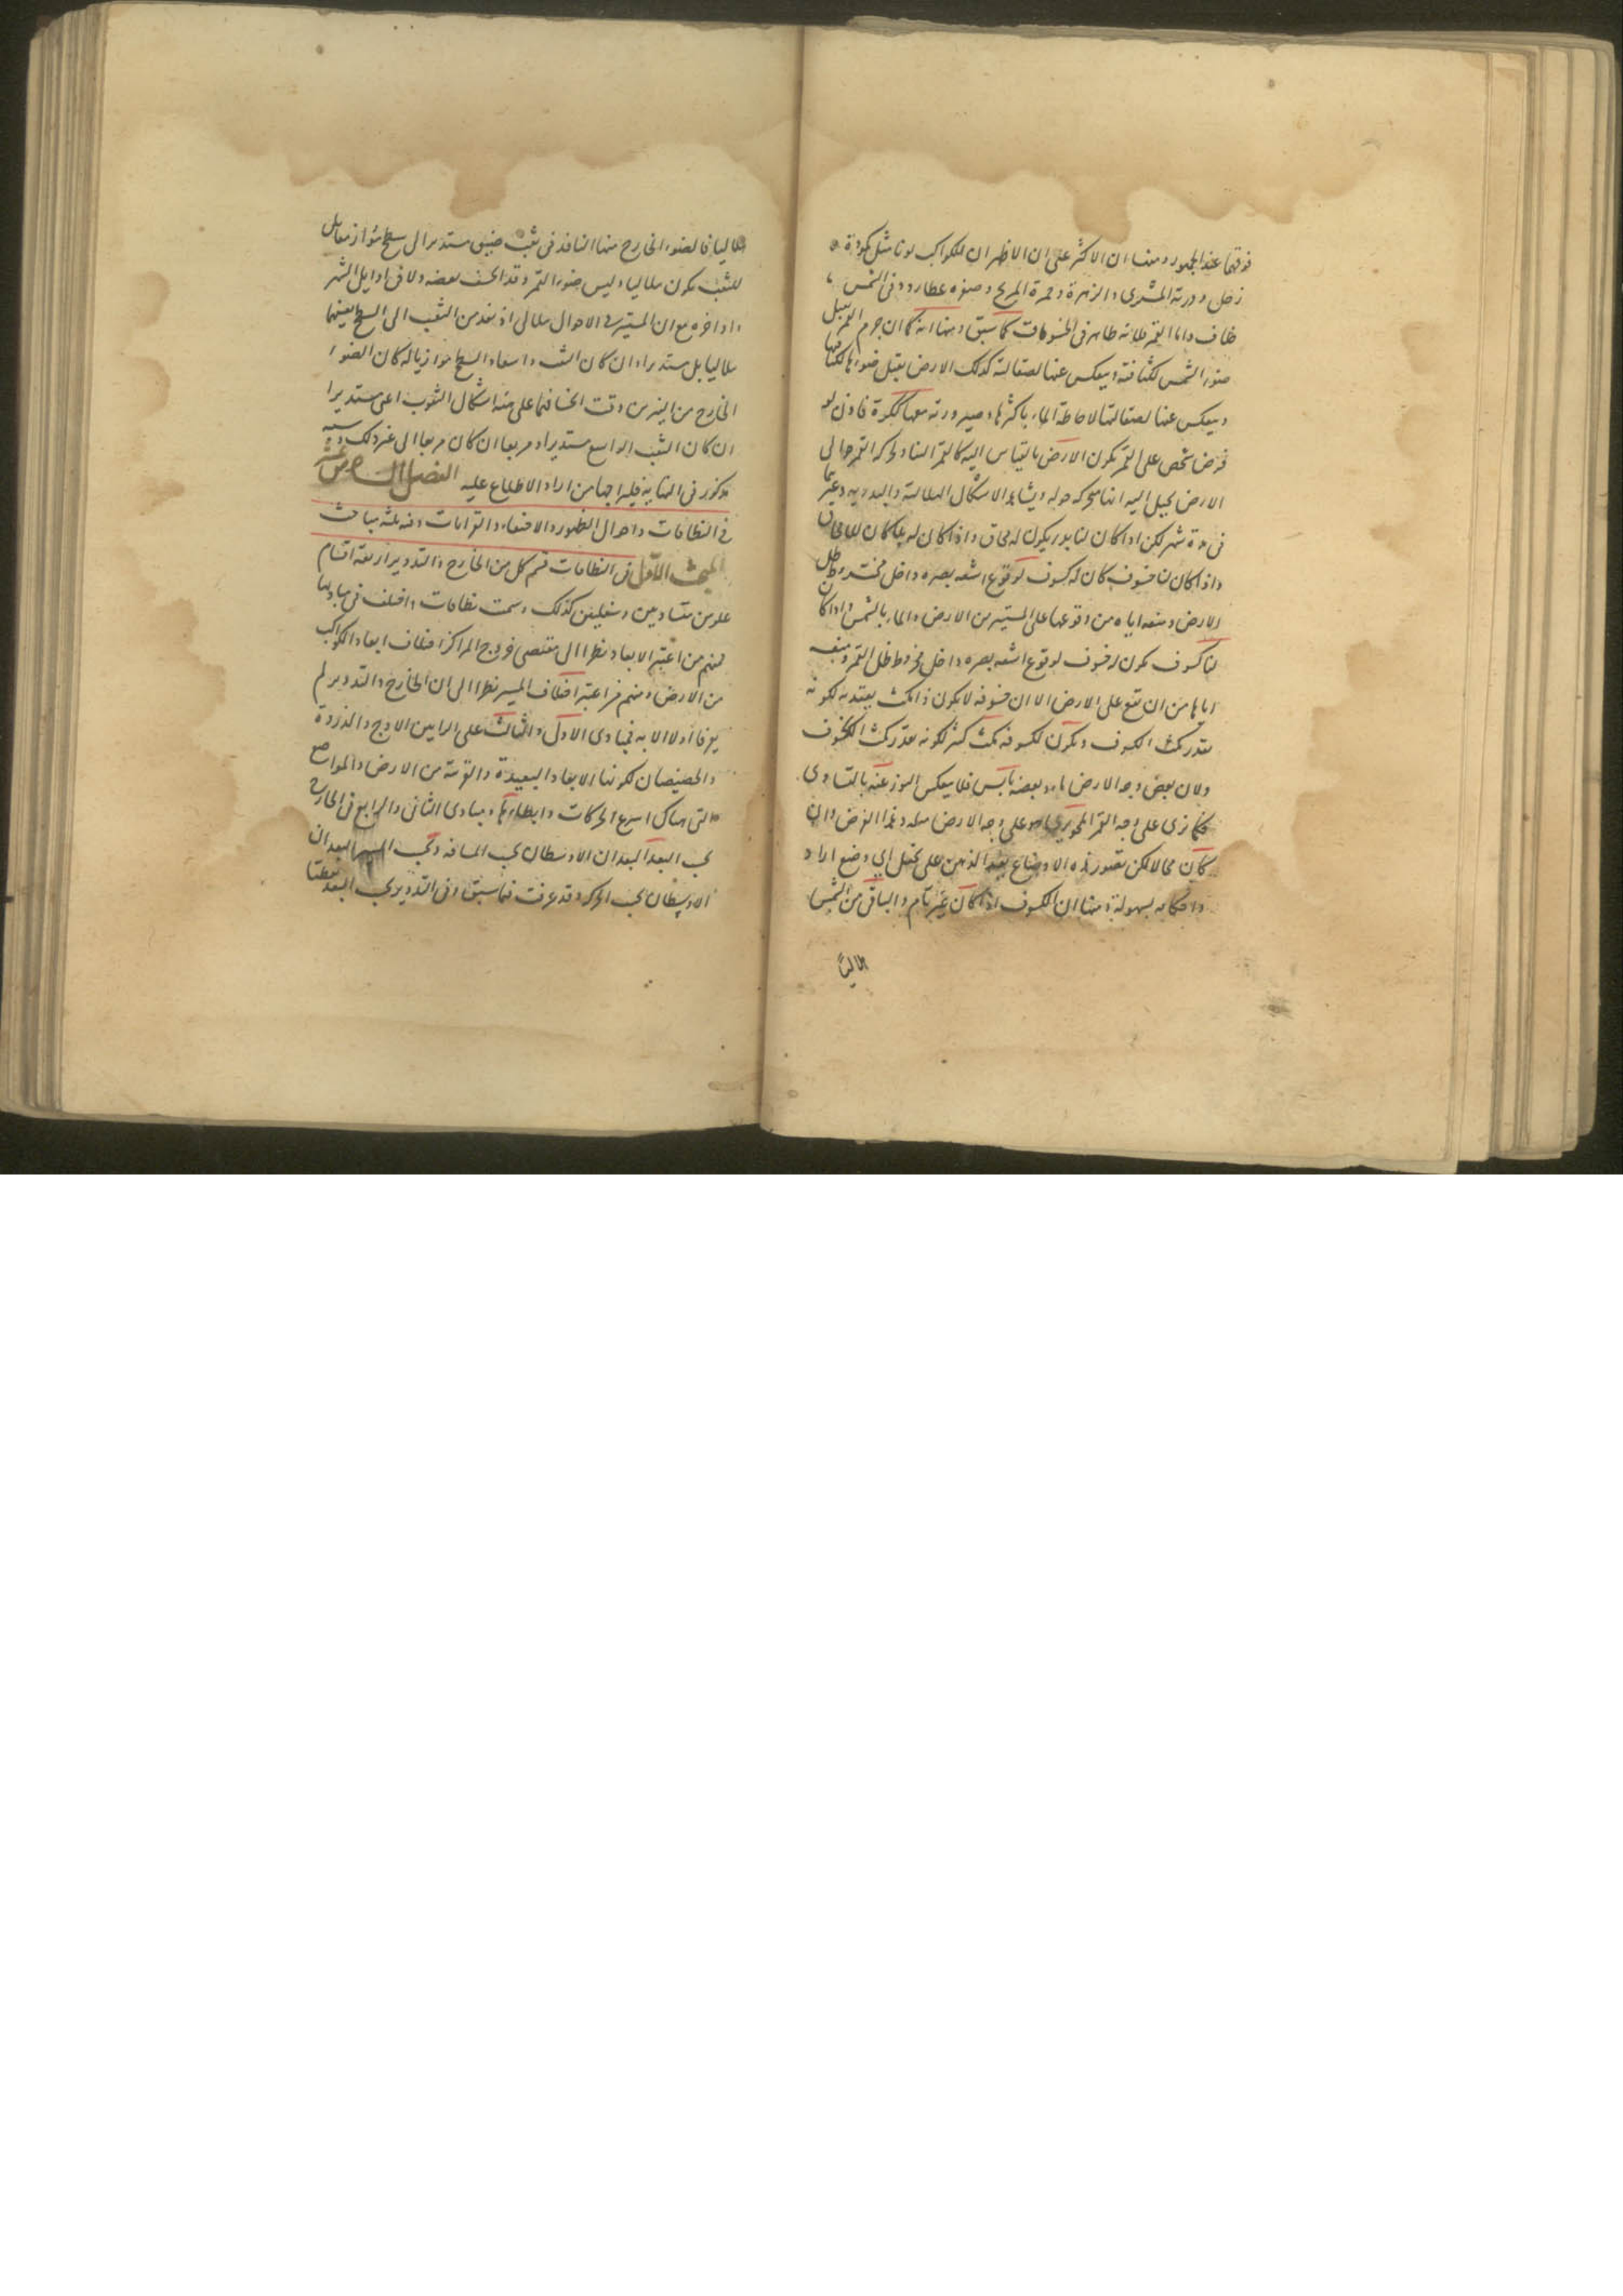 فوقها عند الجمهور ومنها ان الاكثر على ان الاظهر ان للكواكب لونا مثل كمودة
زحل ودرية المشترى والزهرة وحمرة المريخ وصفرة عطارد وفى الشمس
خلاف واما القمر فلانه ظاهر فى الخسوفات كما سبق ومنها انه كما ان جرم القمر يقبل
ضوء الشمس لكثافته وينعكس عنها لصقالته كذلك الارض يقبل ضوءها لكثافتها
وينعكس عنها لصقالتها لاحاطة الماء باكثرها وصيرورته معها ككرة فاذن لو
فرض شخص على القمر يكون الارض بالقياس اليه كالقمر الينا ولحركة القمر حوالى
الارض يخيل اليه انها متحركة حوله ويشاهد الاشكال الهلالية والبدرية وغيرها
فى مدة شهر لكن اذا كان لنا بدر يكون له محاق واذا كان له بدر كان لنا محاق
واذا كان لنا خسوف كان له كسوف لوقوع اشعه بصره داخل مخروط ظل
الارض ومنعه اياه من وقوعها على المستنير من الارض والماء بالشمس واذا كان
لنا كسوف يكون له خسوف لوقوع اشعه بصره داخل مخروط ظل القمر ومنعه
اياها من ان تقع على الارض الا ان خسوفه لا يكون ذا مكث يعتد به لكونه
بقدر مكث الكسوف ويكون لكسوفه مكث كثير لكونه بقدر مكث الخسوف
ولان بعض وجه الارض ماء وبعضه يابس فلا ينعكس النور عنه بالتساوى
فكما نرى على وجه القمر المحو يرى هو على وجه الارض مثله وهذا الفرض وان
كان محالا لكن تصور هذه الاوضاع يعد الذهن على تخيل اى وضع اراد
واحكامه بسهولة ومنها ان الكسوف اذا كان غير تام والباقى من الشمس
هلاليا
هلاليا فالضوء الخارج منها النافذ فى ثقب ضيق مستدير الى سطح مواز مقابل
للثقب يكون هلاليا وليس ضوء القمر وقد انخسف بعضه ولا فى اوايل الشهر
واواخره مع ان المستنير فى الاحوال هلالى اذ نفذ من الثقب الى السطح بعينهما
هلاليا بل مستديرا وان كان الثقب واسعا والسطح موازيا له كان الضوء
الخارج من النيرين وقت انخسافهما على هيئة اشكال الثقوب اعنى مستديرا
ان كان الثقب الواسع مستديرا ومربعا ان كان مربعا الى غير ذلك وسببه
مذكور فى النهاية فليراجها من اراد الاطلاع عليه الفصل السادس عشر
فى النطاقات واحوال الظهور والاختفاء والقرانات وفيه ثلثه مباحث
المبحث الاول فى النطاقات قسم كل من الخارج والتدوير اربعة اقسام
علويين متساويين وسفليين كذلك وسمت نطاقات واختلف فى مباديها
فمنهم من اعتبر الابعاد نظرا الى مقتضى خروج المراكز اختلاف ابعاد الكواكب
من الارض ومنهم من اعتبر اختلاف المسير نظرا الى ان الخارج والتدوير لم
يعرفا اولا الا به فمبادى الاول والثالث على الرايين الاوج والذروة
والحضيضان لكونها الابعاد البعيدة والقريبة من الارض والمواضع
التى هناك اسرع الحركات وابطاءها ومبادى الثانى والرابع فى الخارج
بحسب البعد البعدان الاوسطان بحسب المسافه وبحسب المسير البعدان
الاوسطان بحسب الحركه وقد عرفت فيما سبق وفى التدوير بحسب البعد نقطتا